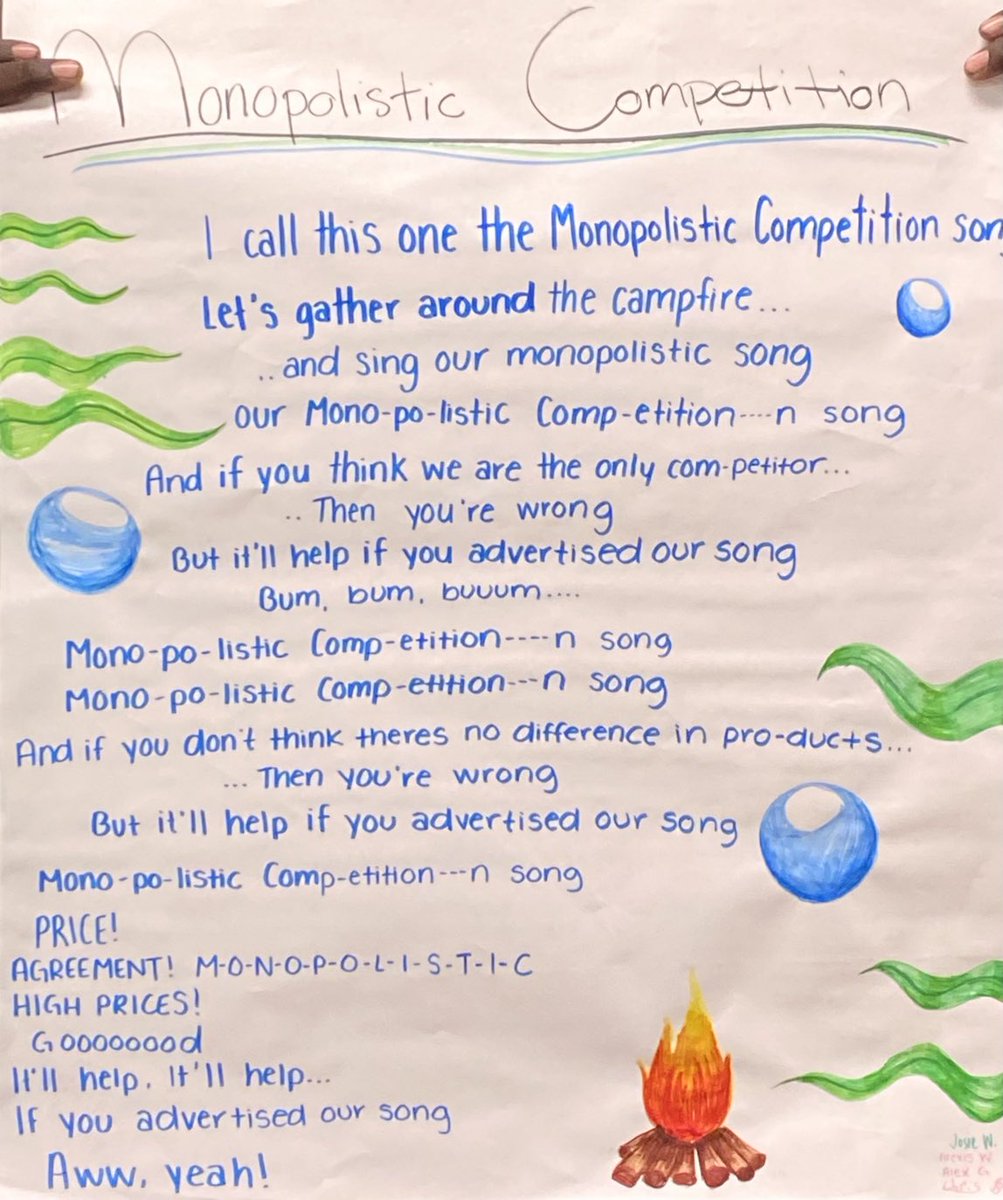 Monopolistic Competition
I call this one the Monopolistic Competition son
Let's gather around the campfire...
..and sing our monopolistic song
our Mono-po-listic Comp-etition----n song
And if you think we are the only com-petitor...
.. Then you're wrong
But it'll help if you advertised our song
Bum, bum, buuum....
Mono-po-listic Comp-etition----n song
Mono-po-listic Comp-etition---n song
And if you don't think theres no difference in pro-ducts...
... Then you're wrong
But it'll help if you advertised our song
Mono-po-listic Comp-etition---n song
PRICE!
AGREEMENT! M-O-N-O-P-O-L-I-S-T-I-C
HIGH PRICES!
Goooooood
It'll help, It'll help...
If you advertised our song
Aww, yeah!
Josie W.
Alexis W.
Alex G.
Chris